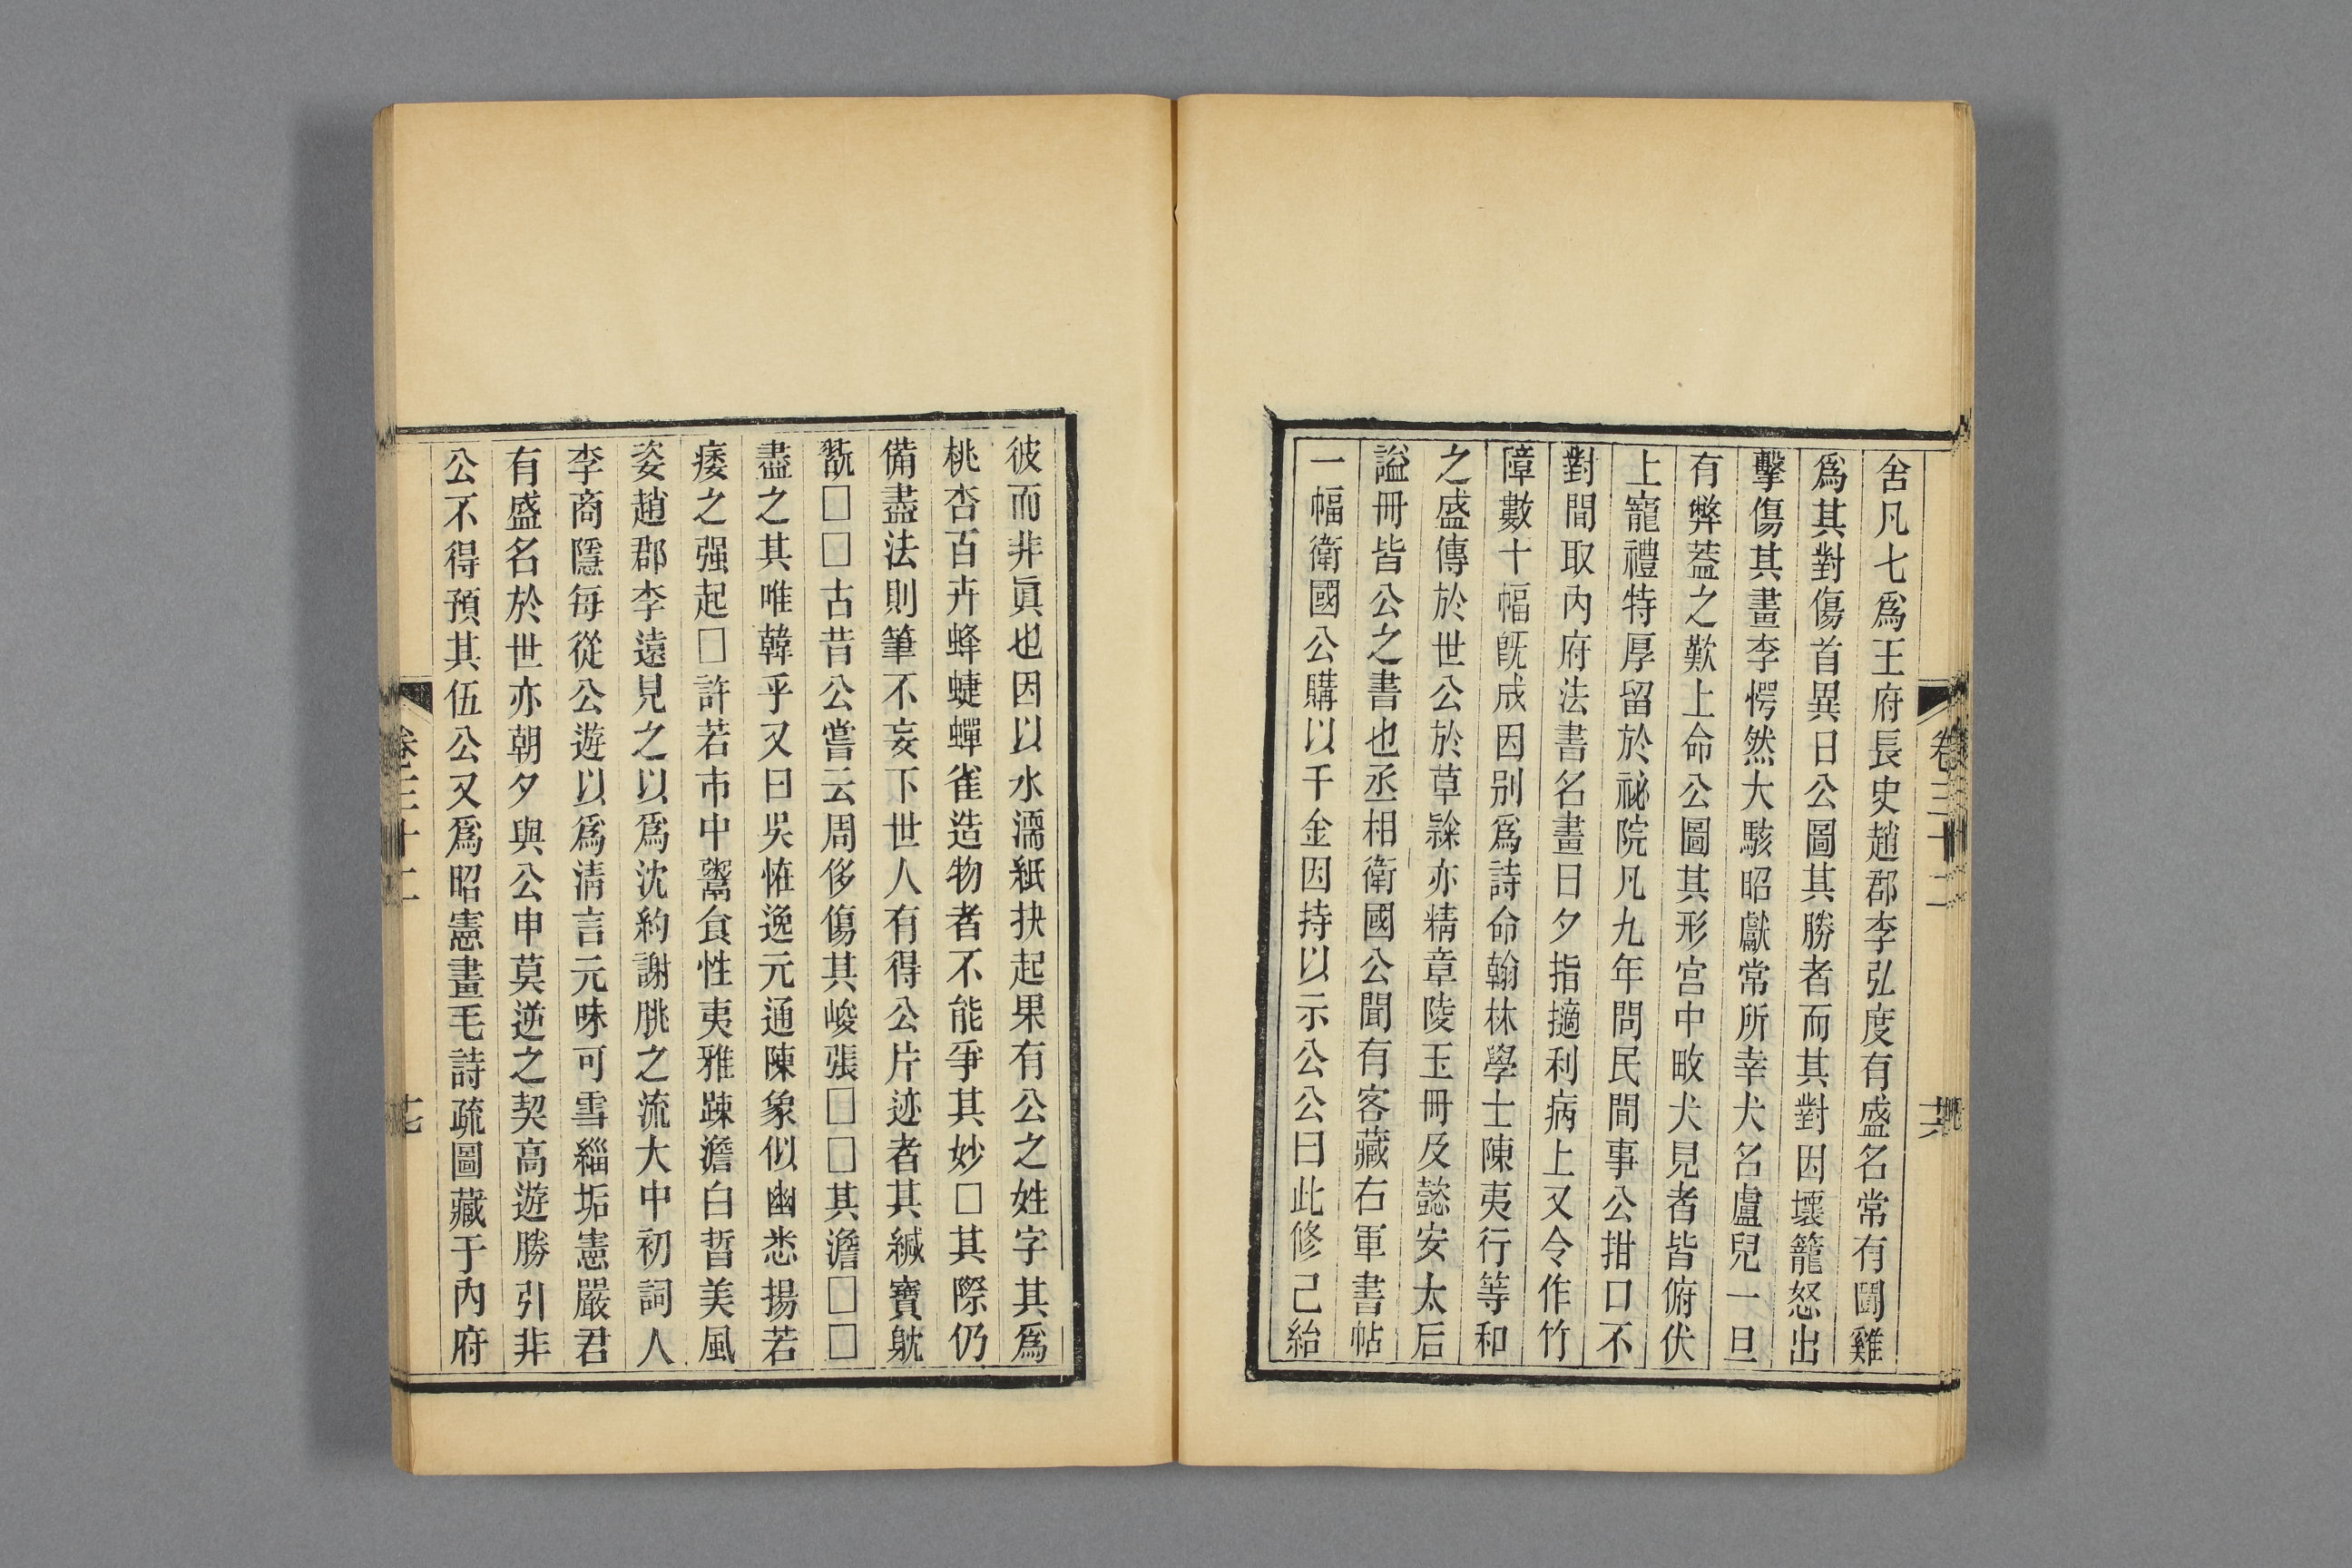 舍凡七爲王府長史趙郡李弘度有盛名常有鬭雞
爲其對傷首異日公圖其勝者而其對因壞籠怒出
擊傷其畫李愕然大駭昭獻常所幸犬名盧兒一旦
有弊蓋之歎上命公圖其形宫中畋犬見者皆俯伏
上寵禮特厚留於祕院凡九年問民間事公拑口不
對間取内府法書名畫日夕指擿利病上又令作竹
障數十幅旣成因别爲詩命翰林學士陳夷行等和
之盛傳於世公於草隸亦精章陵玉冊及懿安太后
謚冊皆公之書也丞相衛國公聞有客藏右軍書帖
一幅衛國公購以千金因持以示公公曰此修己紿
卷三十二
十六
彼而非眞也因以水濡紙抉起果有公之姓字其爲
桃杏百卉蜂蜨蟬雀造物者不能爭其妙□其際仍
備盡法則筆不妄下世人有得公片迹者其緘寶躭
翫□□古昔公嘗云周侈傷其峻張□□其澹□□
盡之其唯韓乎又曰吳恠逸元通陳象似幽悉揚若
痿之强起□許若市中鬻食性夷雅踈澹白晳美風
姿趙郡李遠見之以爲沈約謝朓之流大中初詞人
李商隱每從公遊以爲清言元味可雪緇垢憲嚴君
有盛名於世亦朝夕與公申莫逆之契高遊勝引非
公不得預其伍公又爲昭憲畫毛詩疏圖藏于内府
卷三十二
十七